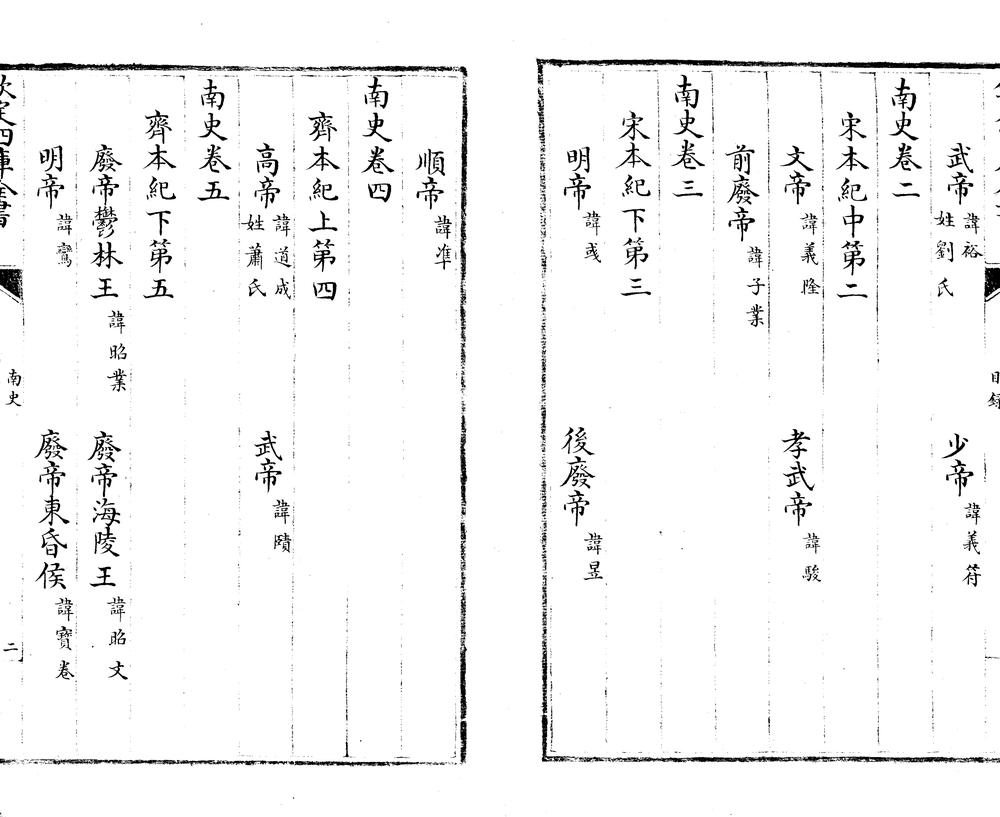 武帝 諱裕 姓劉氏 少帝 諱義符
南史卷二
宋本紀中第二
文帝 諱義隆 孝武帝 諱駿
前廢帝 諱子業
南史卷三
宋本紀下第三
明帝 諱彧 後廢帝 諱昱
順帝 諱準
南史卷四
齊本紀上第四
高帝 諱道成 姓蕭氏 武帝 諱賾
南史卷五
齊本紀下第五
廢帝鬱林王 諱昭業 廢帝海陵王 諱昭文
明帝 諱鸞 廢帝東昏侯 諱寶卷
欽定四庫全書
南史
二
目錄